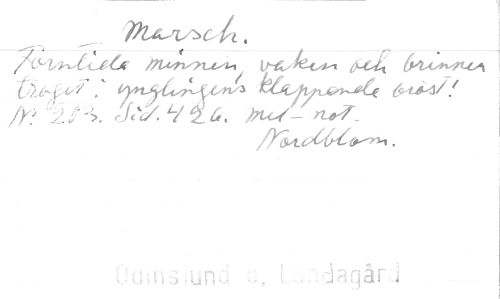 Marsch.
Forntida minnen, vaken och brinnen
troget i ynglingens klappande bröst!
No 203. Sid. 426. mel-not.
Nordblom.
Odinslund o, Lundagård